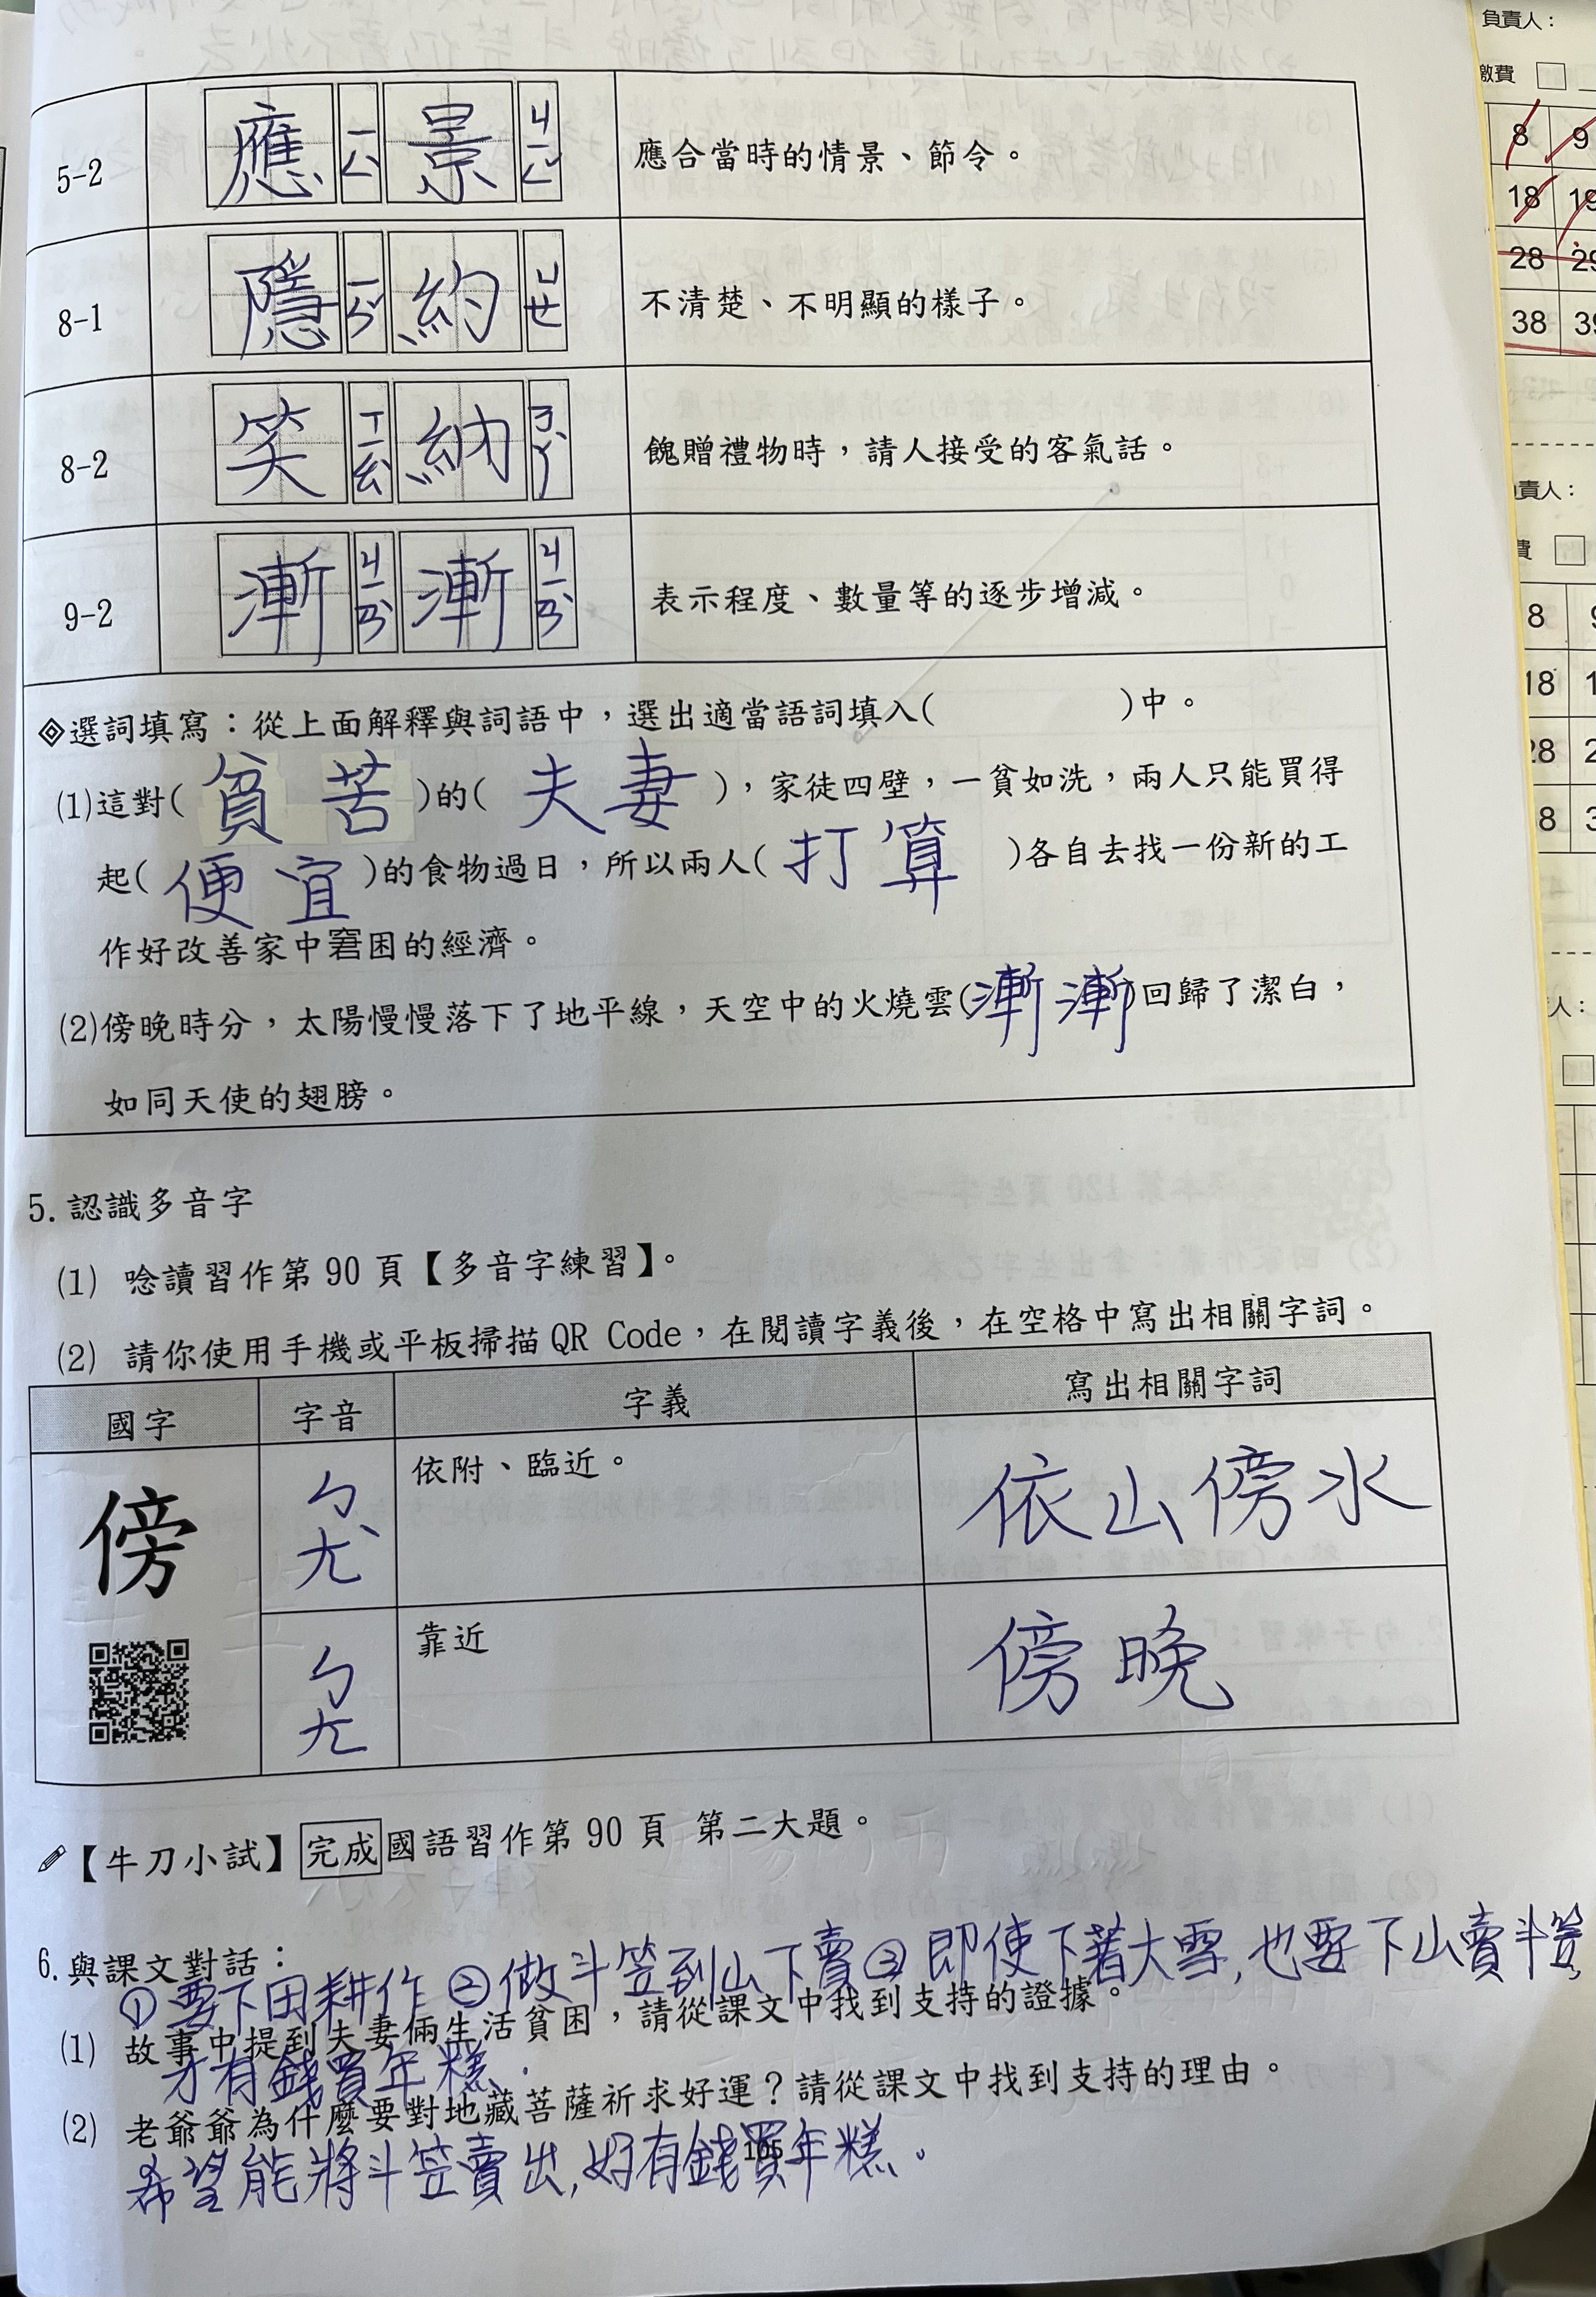 5-2 應 ㄧㄥ 景 ㄐㄧㄥˇ 應合當時的情景、節令。
8-1 隱 ㄧㄣˇ 約 ㄩㄝ 不清楚、不明顯的樣子。
8-2 笑 ㄒㄧㄠˋ 納 ㄋㄚˋ 餽贈禮物時，請人接受的客氣話。
9-2 漸 ㄐㄧㄢˋ 漸 ㄐㄧㄢˋ 表示程度、數量等的逐步增減。
選詞填寫：從上面解釋與詞語中，選出適當語詞填入( )中。
(1)這對(貧苦)的(夫妻)，家徒四壁，一貧如洗，兩人只能買得
起(便宜)的食物過日，所以兩人(打算)各自去找一份新的工
作好改善家中窘困的經濟。
(2)傍晚時分，太陽慢慢落下了地平線，天空中的火燒雲(漸漸)回歸了潔白，
如同天使的翅膀。
5. 認識多音字
(1) 唸讀習作第 90 頁【多音字練習】。
(2) 請你使用手機或平板掃描 QR Code，在閱讀字義後，在空格中寫出相關字詞。
國字 字音 字義 寫出相關字詞
傍 ㄅㄤˋ 依附、臨近。 依山傍水
ㄅㄤ 靠近 傍晚
【牛刀小試】完成國語習作第 90 頁 第二大題。
6. 與課文對話：
①要下田耕作 ②做斗笠到山下賣③即使下著大雪,也要下山賣斗笠,
(1) 故事中提到夫妻倆生活貧困，請從課文中找到支持的證據。
才有錢買年糕.
(2) 老爺爺為什麼要對地藏菩薩祈求好運？請從課文中找到支持的理由。
希望能將斗笠賣出,好有錢買年糕。
105
負責人：
繳費
8 9
18 19
28 29
38 39
負責人：
費
8 9
18
28
8
人：